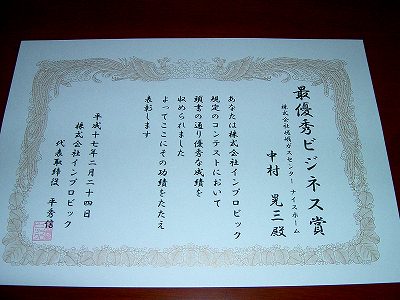 最優秀ビジネス賞
株式会社城南ガスセンター ナイスホーム
中村 晃三 殿
あなたは株式会社インプロビック
規定のコンテストにおいて
頭書の通り優秀な成績を
収められました
よってここにその功績をたたえ
表彰します
平成十七年二月二十四日
株式会社インプロビック
代表取締役 平秀信